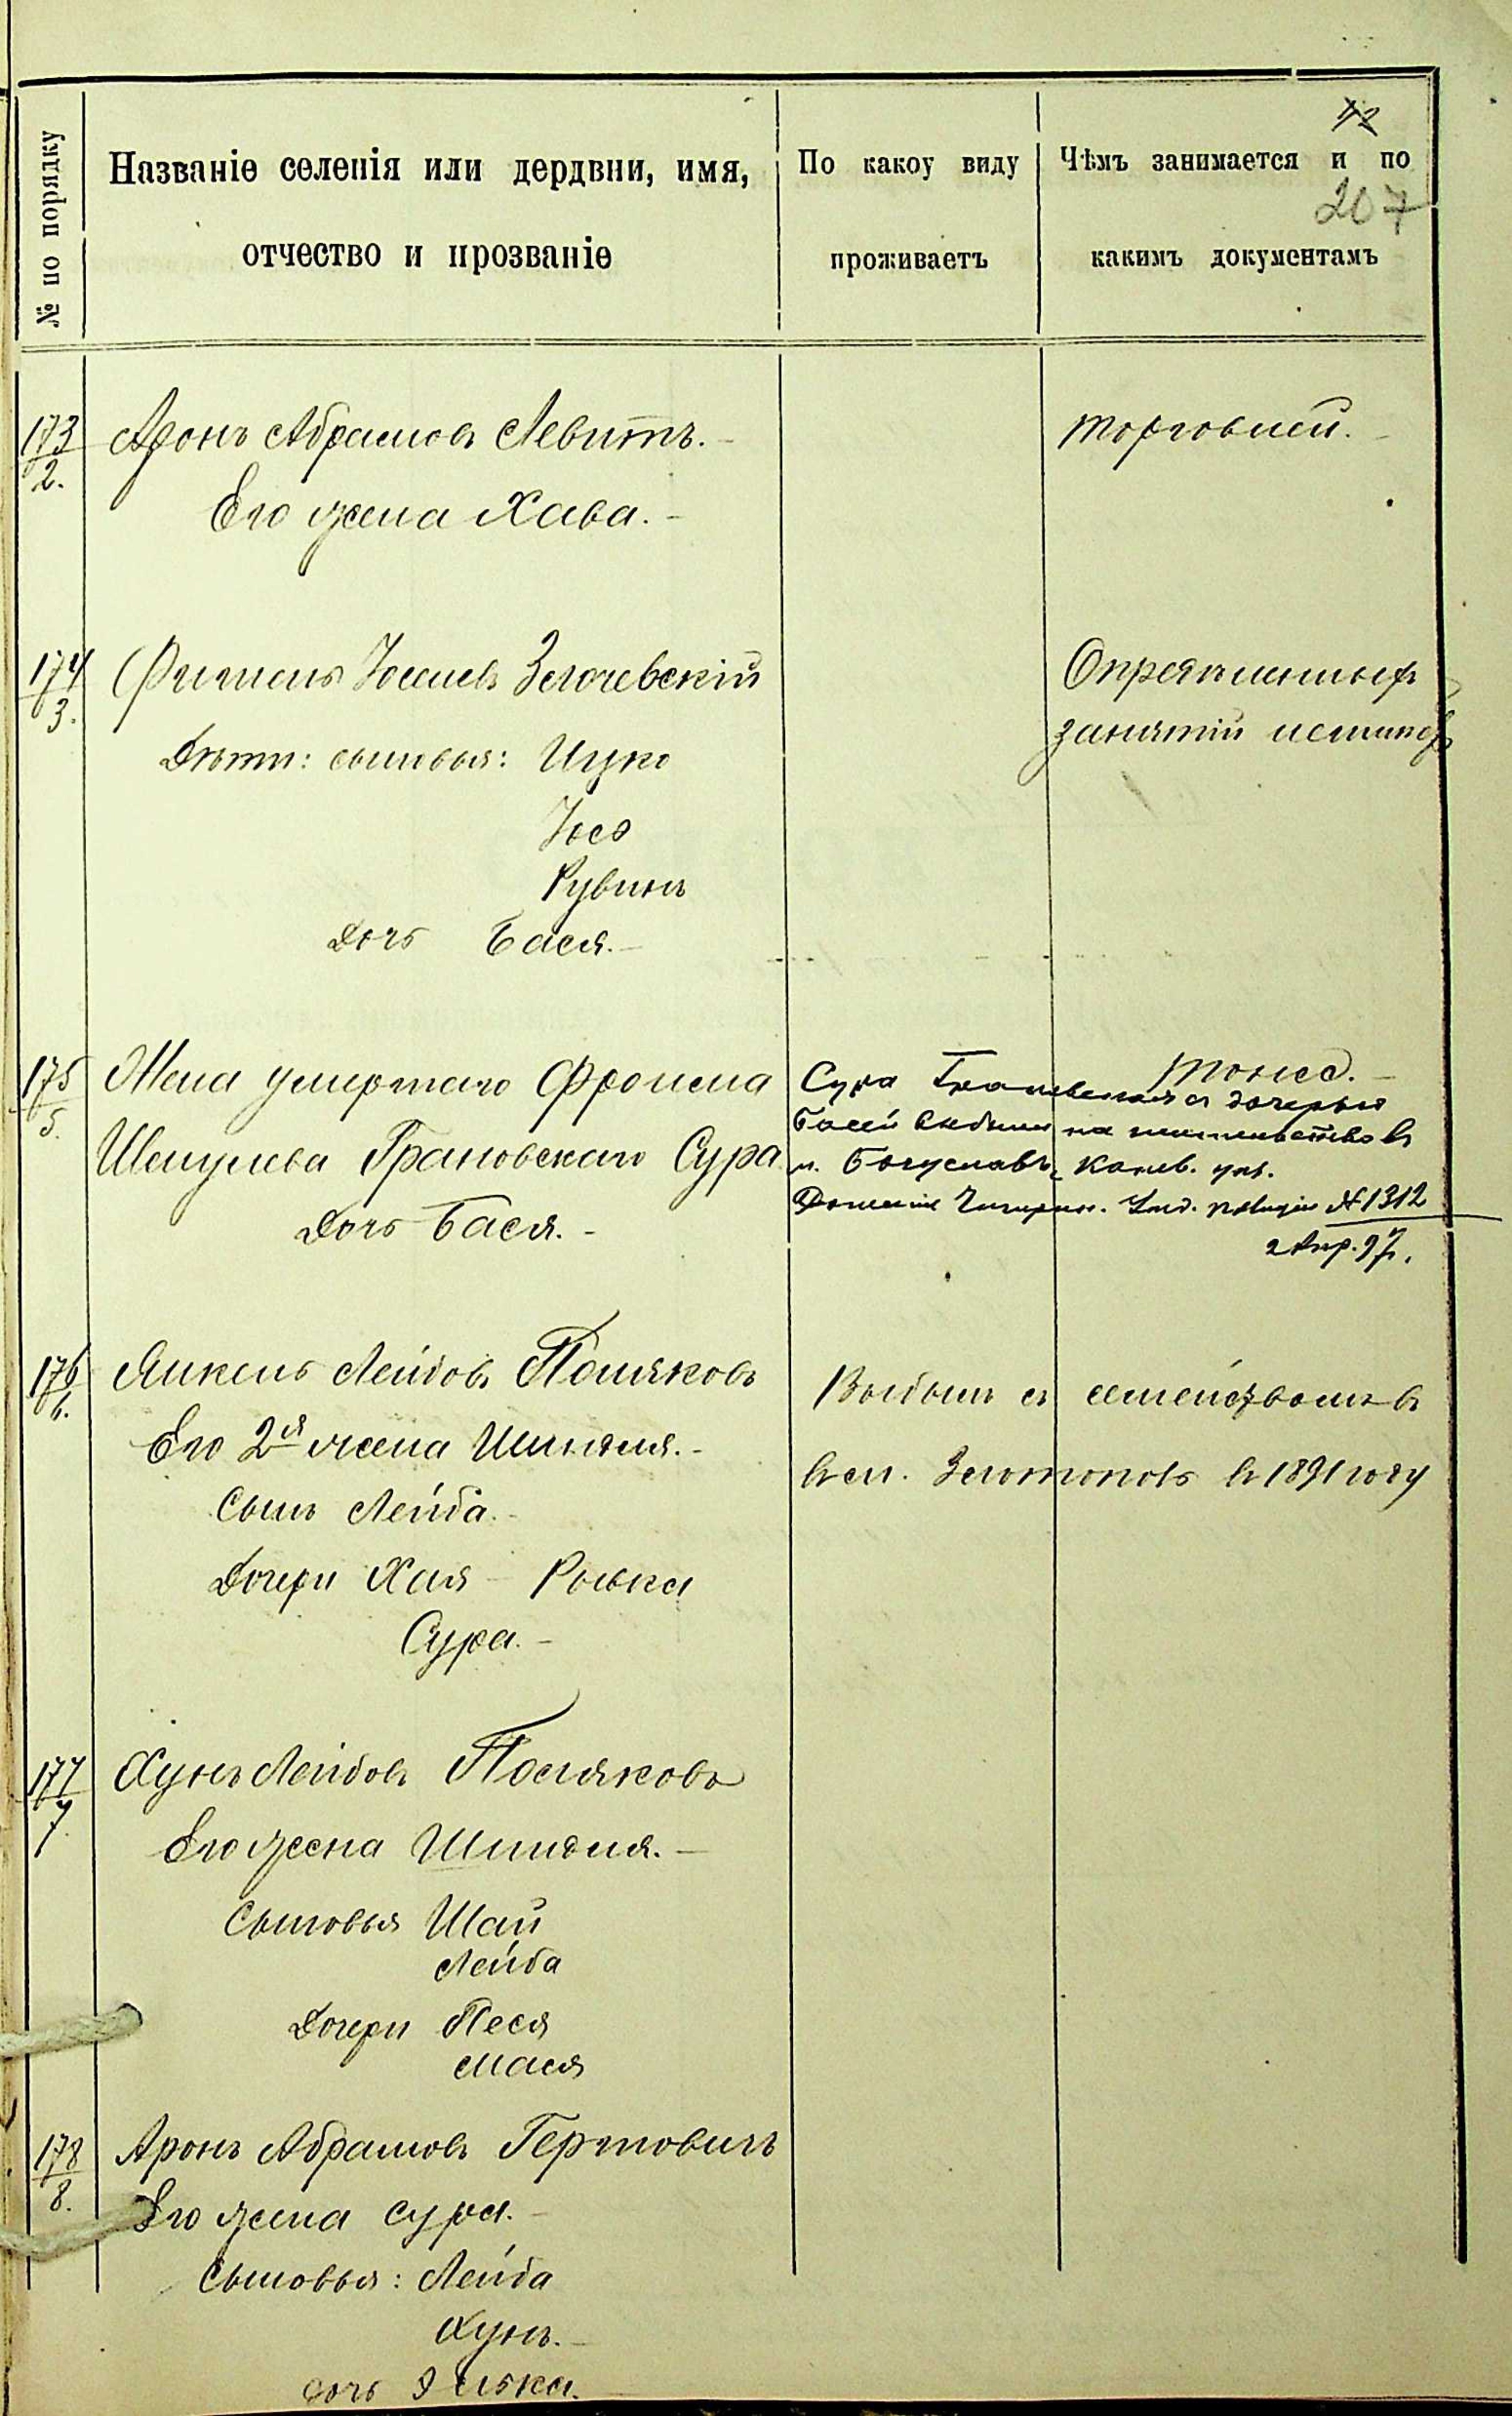 12
207
№ по порядку
Названіе селенія или дердвни, имя,
отчество и прозваніе
По какоу виду
проживаетъ
Чѣмъ занимается и по
какимъ документамъ
173
2.
Аронъ Абрамовъ Левитъ.
Его жена Хава.
торговлей.
174
3.
Фишель Іоселевъ Злочевскій
Дѣти: сыновья: Ицко
Іосѣ
Рувинъ
Дочь Бася.
Опредѣленныхъ
занятій неимѣетъ
175
5.
Жена умершаго Фроима
Шмулева Грановскаго Сура
Дочь Бася.
тоже.
Сура Грановская съ дочерью
Басей выбыли на жительство въ
м. Богуславъ, Канев. уѣз.
Чигирин. Уѣзд. полиціи №1312
2 Апр. 97.
176
6.
Янкель Лейбовъ Поляковъ
Его 2я жена Шиндля.
Сынъ Лейба.
Дочери Хая Ривка
Сура.
Выбылъ съ семействомъ въ
въ м. Златополь въ 1891 году
177
7
Хунъ Лейбовъ Поляковъ
Его жена Шиндля.
Сыновья Шаи
Лейба
Дочери Песя
Мася
178
8.
Аронъ Абрамовъ Гертовичъ
Его жена Сура.
Сыновья: Лейба
Хунъ.
дочь Элька.